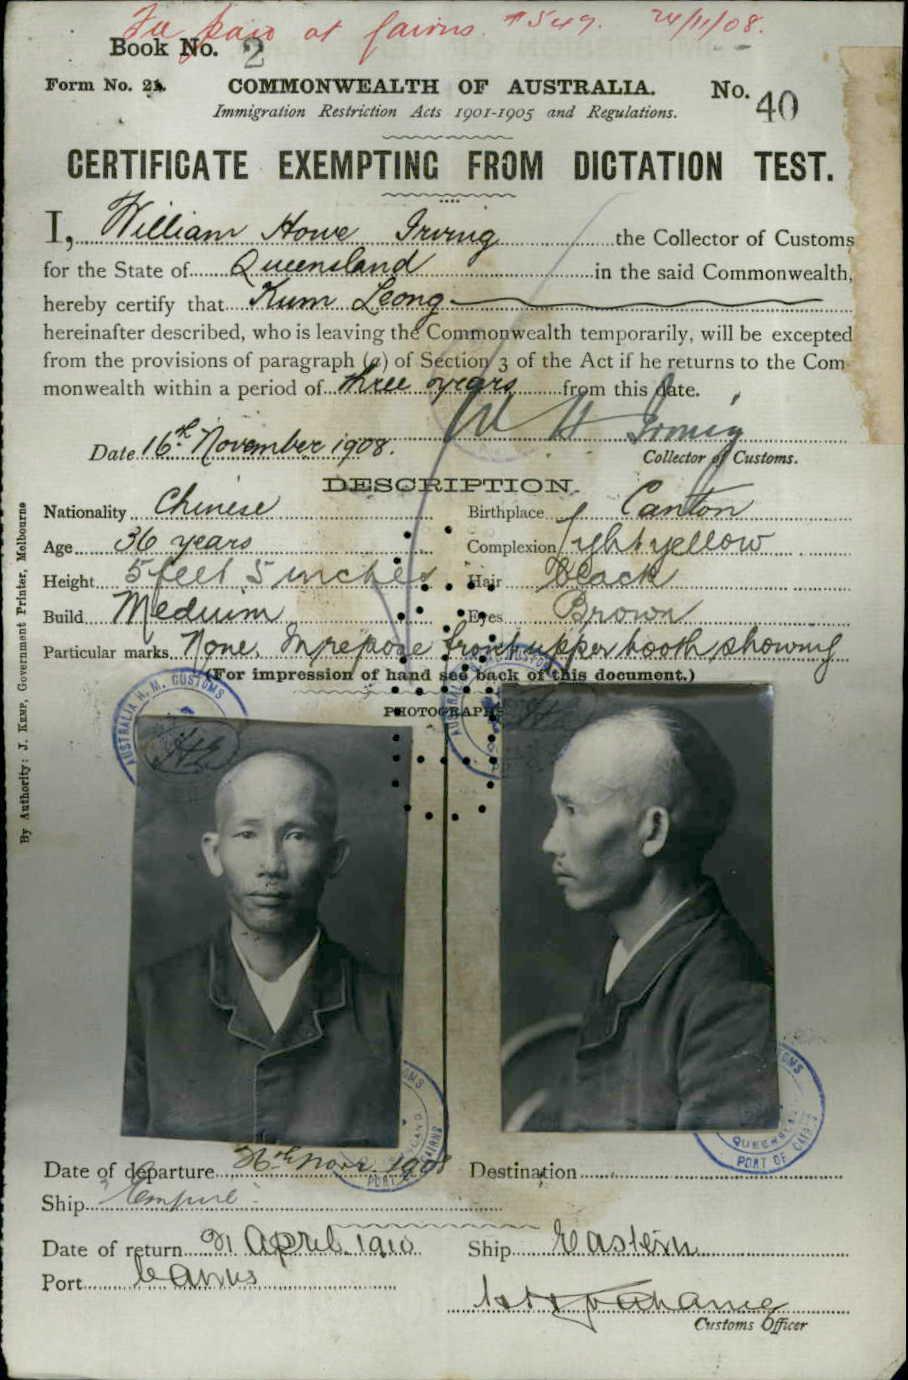 Fee paid at Cairns. #549. 24/11/08.
Book No. 2
Form No. 21.
COMMONWEALTH OF AUSTRALIA.
No. 40
Immigration Restriction Acts 1901-1905 and Regulations.
CERTIFICATE EXEMPTING FROM DICTATION TEST.
I, William Howe Irving the Collector of Customs
for the State of Queensland in the said Commonwealth,
hereby certify that Kum Leong
hereinafter described, who is leaving the Commonwealth temporarily, will be excepted
from the provisions of paragraph (a) of Section 3 of the Act if he returns to the Com-
monwealth within a period of three years from this date.
W H Irving
Date 16th November 1908.
Collector of Customs.
DESCRIPTION.
Nationality Chinese Birthplace Canton
Age 36 years Complexion Light yellow
Height 5 feet 5 inches Hair black
Build Medium Eyes Brown
Particular marks None. In repose front upper tooth showing
(For impression of hand see back of this document.)
PHOTOGRAPHS
AUSTRALIA H. M. CUSTOMS
QUEENSLAND
PORT OF CAIRNS
By Authority: J. KEMP, Government Printer, Melbourne
Date of departure 26th Novr. 1908 Destination
Ship Empire
Date of return 21 April. 1910 Ship Eastern
Port Cairns
Customs Officer